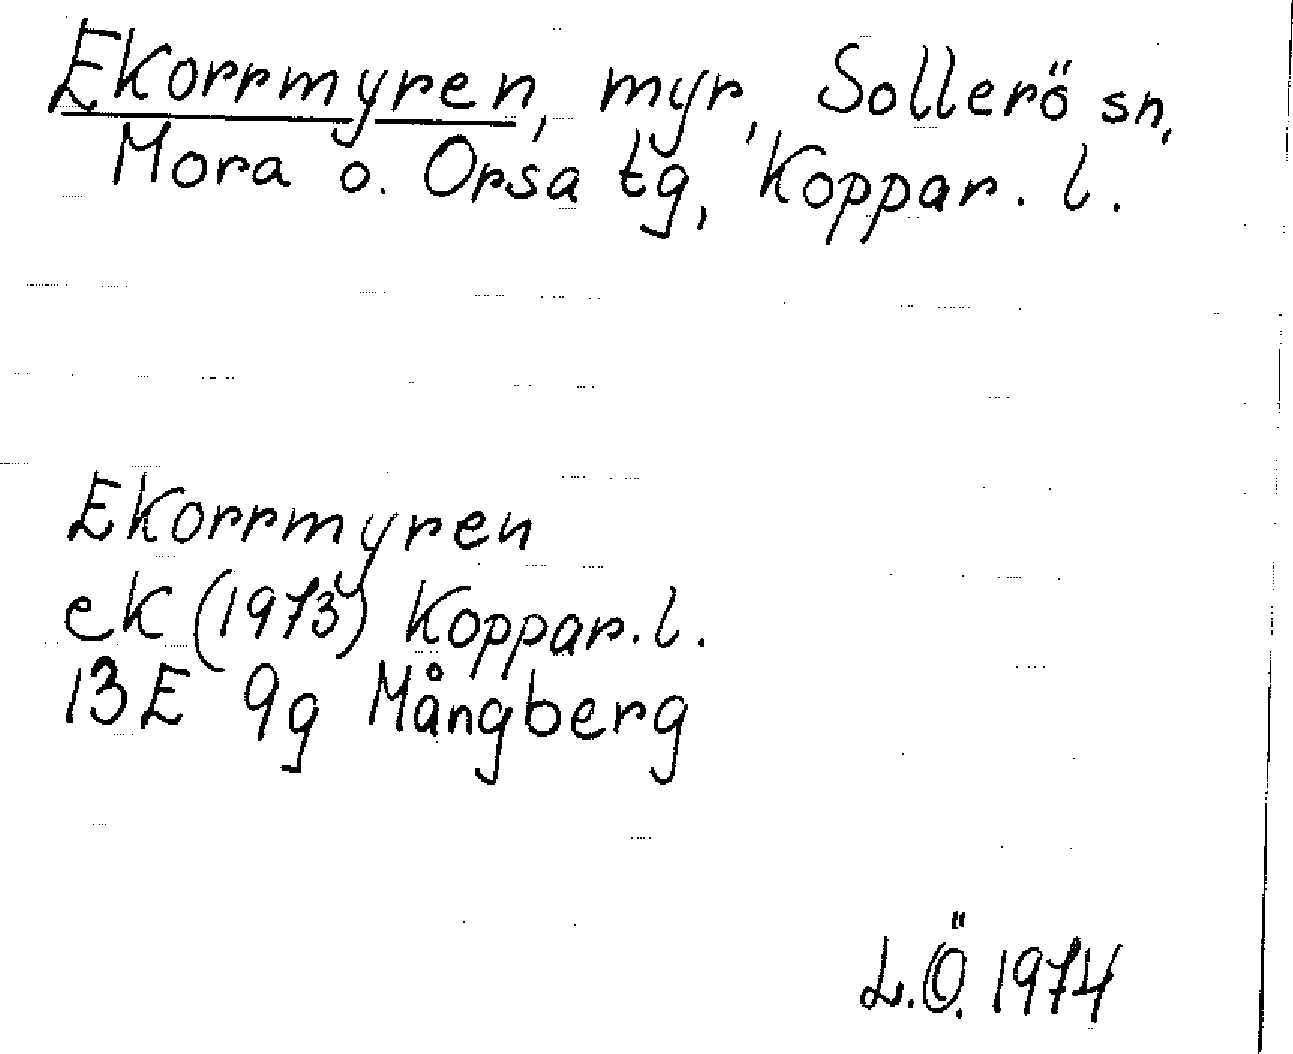 Ekorrmyren, myr, Sollerö sn,
Mora o. Orsa tg, Koppar. l.
Ekorrmyren
ek (1973) Koppar. l.
13E 9g Mångberg
L.Ö. 1974